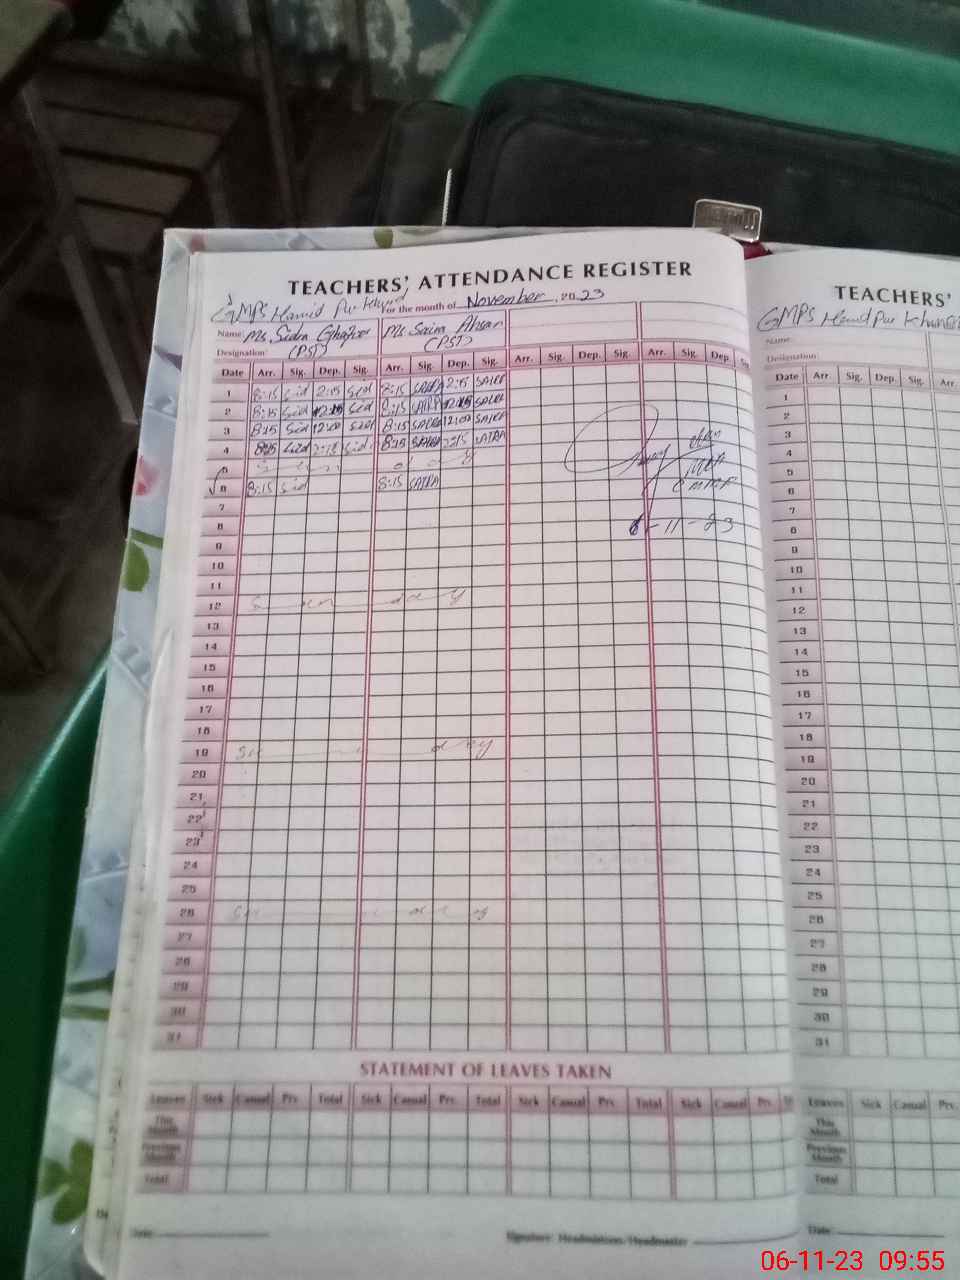 TEACHERS' ATTENDANCE REGISTER
GMPS Hamid Pur Khurd For the month of November, 2023
Name: Ms. Sidra Ghafoor Ms. Saira Ahsan
Designation: (PST) (PST)
Date Arr. Sig. Dep. Sig. Arr. Sig. Dep. Sig. Arr. Sig. Dep. Sig. Arr. Sig. Dep. Sig.
1 8:15 Sid 2:15 Sid 8:15 SAIRA 2:15 SAIRA
2 8:15 Sid 12:15 Sid 8:15 SAIRA 12:15 SAIRA
3 8:15 Sid 12:00 Sid 8:15 SAIRA 12:00 SAIRA
4 8:15 Sid 2:15 Sid 8:15 SAIRA 2:15 SAIRA
5 Sun day
6 8:15 Sid 8:15 SAIRA
7
8 6-11-23
9
10
11
12 Sun day
13
14
15
16
17
18
19 Sun day
20
21
22
23
24
25
26 Sun day
27
28
29
30
31
STATEMENT OF LEAVES TAKEN
Leaves Sick Casual Prv. Total Sick Casual Prv. Total Sick Casual Prv. Total Sick Casual Prv.
This Month
Previous Month
Total
Date:
Signature: Headmistress/Headmaster
TEACHERS'
GMPS Hamid Pur Khurd
Name:
Designation:
Date Arr. Sig. Dep. Sig. Arr.
1
2
3
4
5
6
7
8
9
10
11
12
13
14
15
16
17
18
19
20
21
22
23
24
25
26
27
28
29
30
31
Leaves Sick Casual Prv.
This Month
Previous Month
Total
Date:
06-11-23 09:55